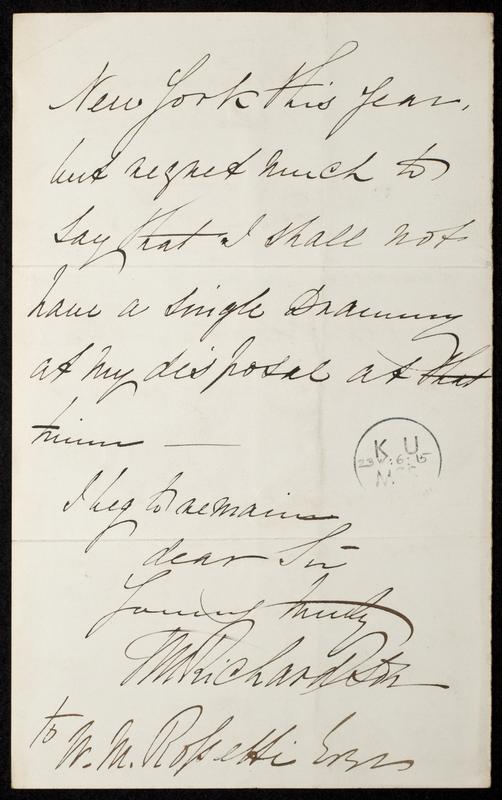 New York this year,
but regret much to
say that I shall not
have a single Drawing
at my disposal at that
time —
K U
23W:6:15
I beg to remain
dear Sir
Yours truly
TM Richardson
to W. M. Rossetti Esqr